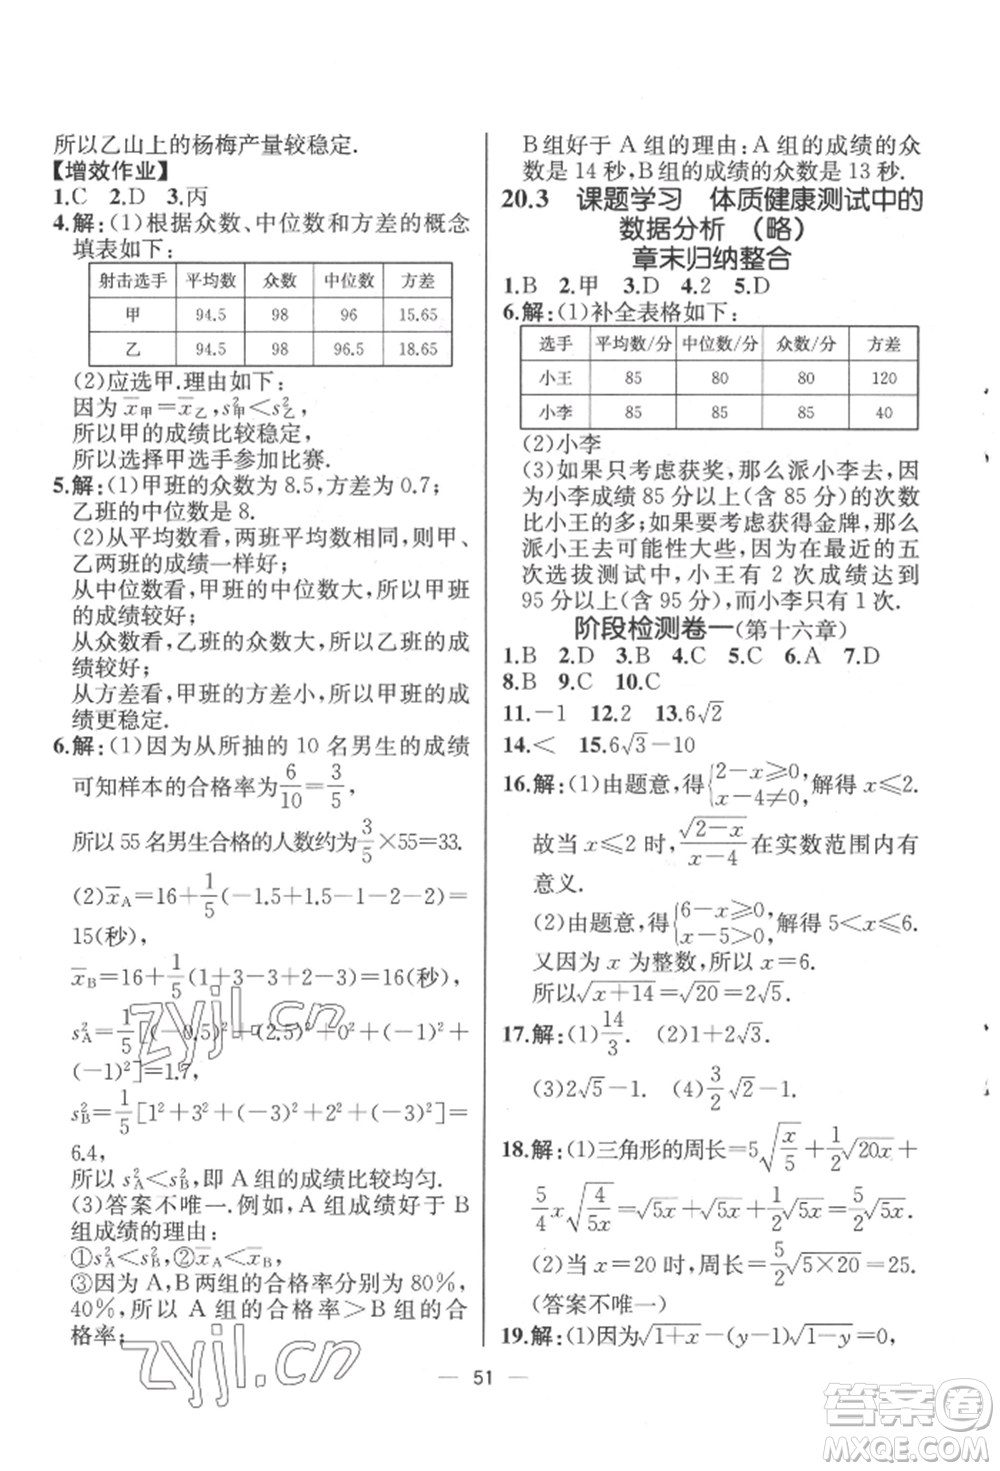 所以乙山上的杨梅产量较稳定.
【增效作业】
1.C 2.D 3.丙
4.解:(1)根据众数、中位数和方差的概念
填表如下:
射击选手 平均数 众数 中位数 方差
甲 94.5 98 96 15.65
乙 94.5 98 96.5 18.65
(2)应选甲.理由如下:
因为 x̄甲=x̄乙,s²甲<s²乙,
所以甲的成绩比较稳定,
所以选择甲选手参加比赛.
5.解:(1)甲班的众数为 8.5,方差为 0.7;
乙班的中位数是 8.
(2)从平均数看,两班平均数相同,则甲、
乙两班的成绩一样好;
从中位数看,甲班的中位数大,所以甲班
的成绩较好;
从众数看,乙班的众数大,所以乙班的成
绩较好;
从方差看,甲班的方差小,所以甲班的成
绩更稳定.
6.解:(1)因为从所抽的 10 名男生的成绩
可知样本的合格率为 6/10=3/5,
所以 55 名男生合格的人数约为 3/5×55=33.
(2)x̄A=16+1/5(-1.5+1.5-1-2-2)=
15(秒),
x̄B=16+1/5(1+3-3+2-3)=16(秒),
s²A=1/5[(-0.5)²+(2.5)²+0²+(-1)²+
(-1)²]=1.7,
s²B=1/5[1²+3²+(-3)²+2²+(-3)²]=
6.4,
所以 s²A<s²B,即 A 组的成绩比较均匀.
(3)答案不唯一.例如,A 组成绩好于 B
组成绩的理由:
①s²A<s²B,②x̄A<x̄B.
③因为 A,B 两组的合格率分别为 80%,
40%,所以 A 组的合格率>B 组的合
格率;
B 组好于 A 组的理由:A 组的成绩的众
数是 14 秒,B 组的成绩的众数是 13 秒.
20.3 课题学习 体质健康测试中的
数据分析 (略)
章末归纳整合
1.B 2.甲 3.D 4.2 5.D
6.解:(1)补全表格如下:
选手 平均数/分 中位数/分 众数/分 方差
小王 85 80 80 120
小李 85 85 85 40
(2)小李
(3)如果只考虑获奖,那么派小李去,因
为小李成绩 85 分以上(含 85 分)的次数
比小王的多;如果要考虑获得金牌,那么
派小王去可能性大些,因为在最近的五
次选拔测试中,小王有 2 次成绩达到
95 分以上(含 95 分),而小李只有 1 次.
阶段检测卷一(第十六章)
1.B 2.D 3.B 4.C 5.C 6.A 7.D
8.B 9.C 10.C
11.-1 12.2 13.6√2
14.< 15.6√3-10
16.解:(1)由题意,得{2-x≥0, x-4≠0, 解得 x≤2.
故当 x≤2 时,√(2-x)/(x-4) 在实数范围内有
意义.
(2)由题意,得{6-x≥0, x-5>0, 解得 5<x≤6.
又因为 x 为整数,所以 x=6.
所以√(x+14)=√20=2√5.
17.解:(1)14/3. (2)1+2√3.
(3)2√5-1. (4)3/2√2-1.
18.解:(1)三角形的周长=5√(x/5)+1/2√(20x)+
5/4x√(4/5x)=√(5x)+√(5x)+1/2√(5x)=5/2√(5x).
(2)当 x=20 时,周长=5/2√(5×20)=25.
(答案不唯一)
19.解:(1)因为√(1+x)-(y-1)√(1-y)=0,
51
zyjl.cn
zyjl.cn
答案卷
MXQE.COM